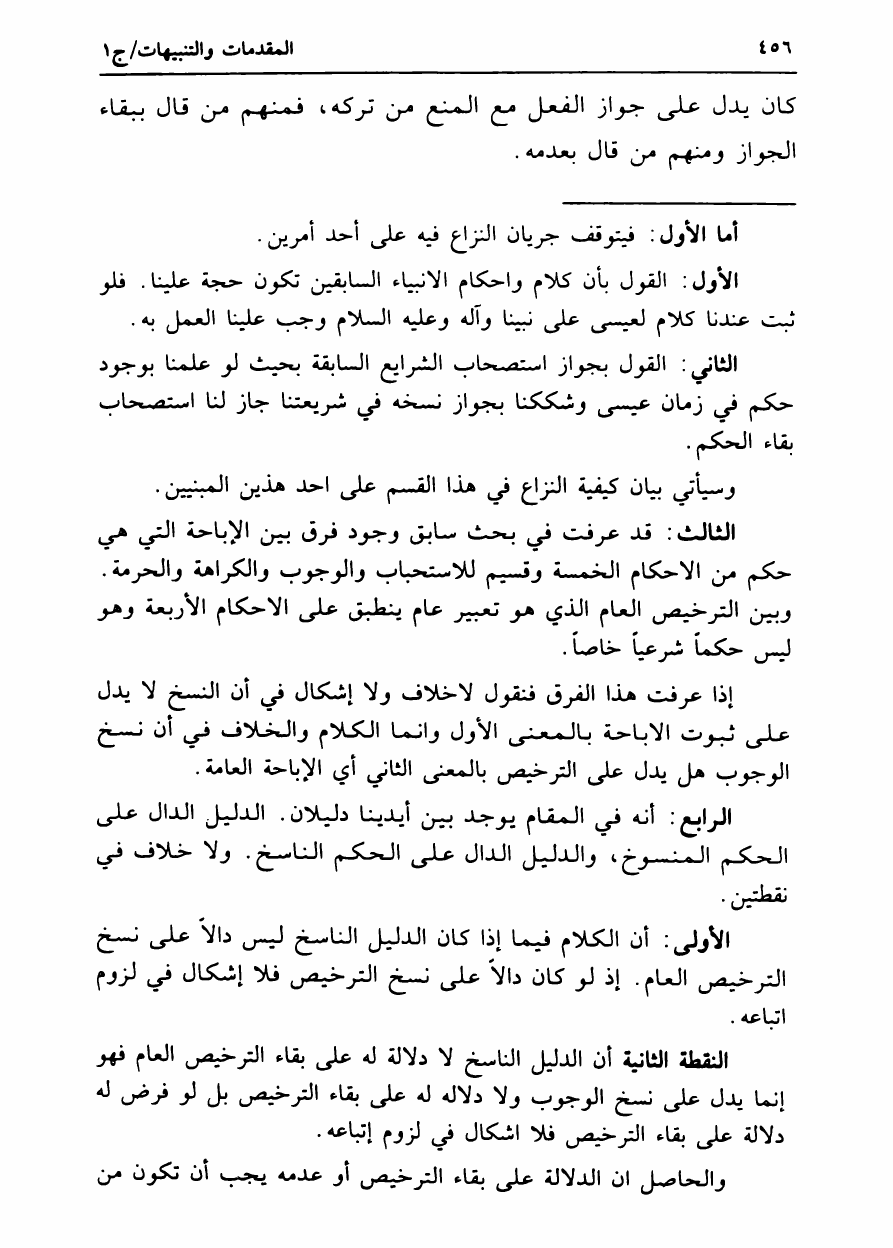 ٤٥٦
المقدمات والتنبيهات/ج١
كان يدل على جواز الفعل مع المنع من تركه، فمنهم من قال ببقاء
الجواز ومنهم من قال بعدمه.
أما الأول: فيتوقف جريان النزاع فيه على أحد أمرين.
الأول: القول بأن كلام واحكام الانبياء السابقين تكون حجة علينا. فلو
ثبت عندنا كلام لعيسى على نبينا وآله وعليه السلام وجب علينا العمل به.
الثاني: القول بجواز استصحاب الشرايع السابقة بحيث لو علمنا بوجود
حكم في زمان عيسى وشككنا بجواز نسخه في شريعتنا جاز لنا استصحاب
بقاء الحكم.
وسيأتي بيان كيفية النزاع في هذا القسم على احد هذين المبنيين.
الثالث: قد عرفت في بحث سابق وجود فرق بين الإباحة التي هي
حكم من الاحكام الخمسة وقسيم للاستحباب والوجوب والكراهة والحرمة.
وبين الترخيص العام الذي هو تعبير عام ينطبق على الاحكام الأربعة وهو
ليس حكماً شرعياً خاصاً.
إذا عرفت هذا الفرق فنقول لاخلاف ولا إشكال في أن النسخ لا يدل
على ثبوت الاباحة بالمعنى الأول وانما الكلام والخلاف في أن نسخ
الوجوب هل يدل على الترخيص بالمعنى الثاني أي الإباحة العامة.
الرابع: أنه في المقام يوجد بين أيدينا دليلان. الدليل الدال على
الحكم المنسوخ، والدليل الدال على الحكم الناسخ. ولا خلاف في
نقطتين.
الأولى: أن الكلام فيما إذا كان الدليل الناسخ ليس دالاً على نسخ
الترخيص العام. إذ لو كان دالاً على نسخ الترخيص فلا إشكال في لزوم
اتباعه.
النقطة الثانية أن الدليل الناسخ لا دلالة له على بقاء الترخيص العام فهو
إنما يدل على نسخ الوجوب ولا دلاله له على بقاء الترخيص بل لو فرض له
دلالة على بقاء الترخيص فلا اشكال في لزوم إتباعه.
والحاصل ان الدلالة على بقاء الترخيص أو عدمه يجب أن تكون من